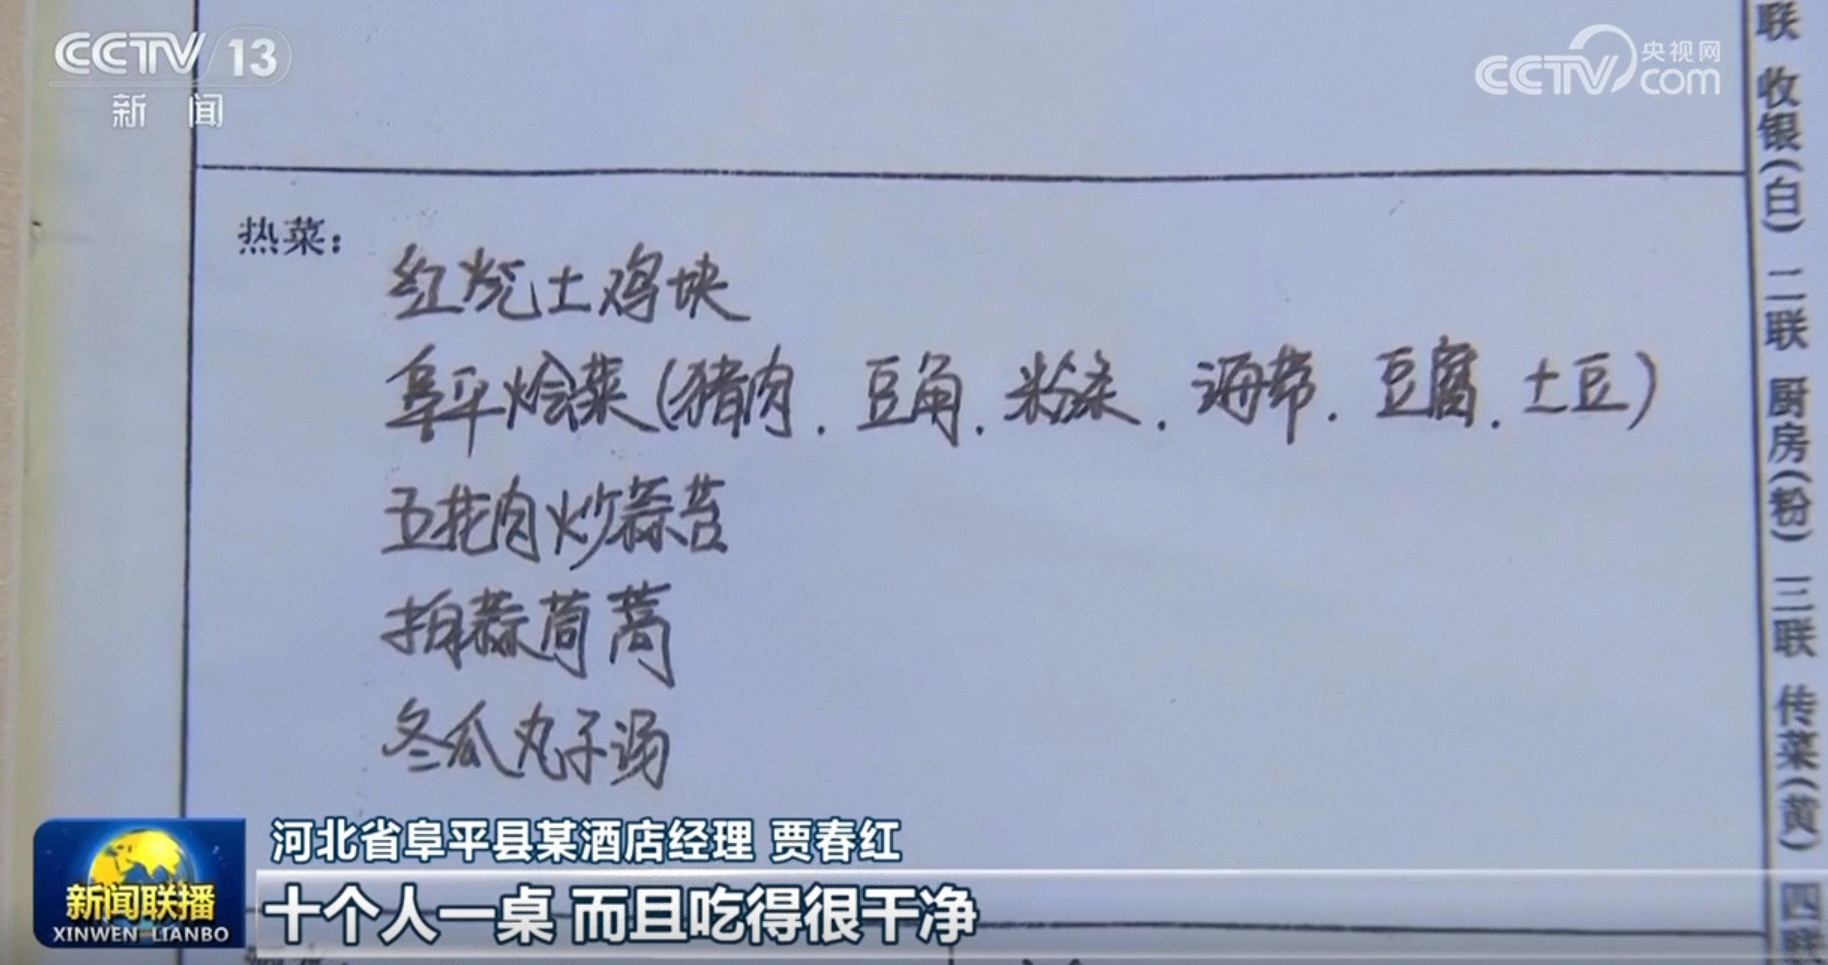 CCTV 13
新闻
央视网
CCTV.com
热菜：
红烧土鸡块
阜平烩菜(猪肉.豆角.粉条.海带.豆腐.土豆)
五花肉炒蒜苔
拍蒜茼蒿
冬瓜丸子汤
联 收银(白) 二联 厨房(粉) 三联 传菜(黄) 四联
河北省阜平县某酒店经理 贾春红
新闻联播
XINWEN LIANBO
十个人一桌 而且吃得很干净